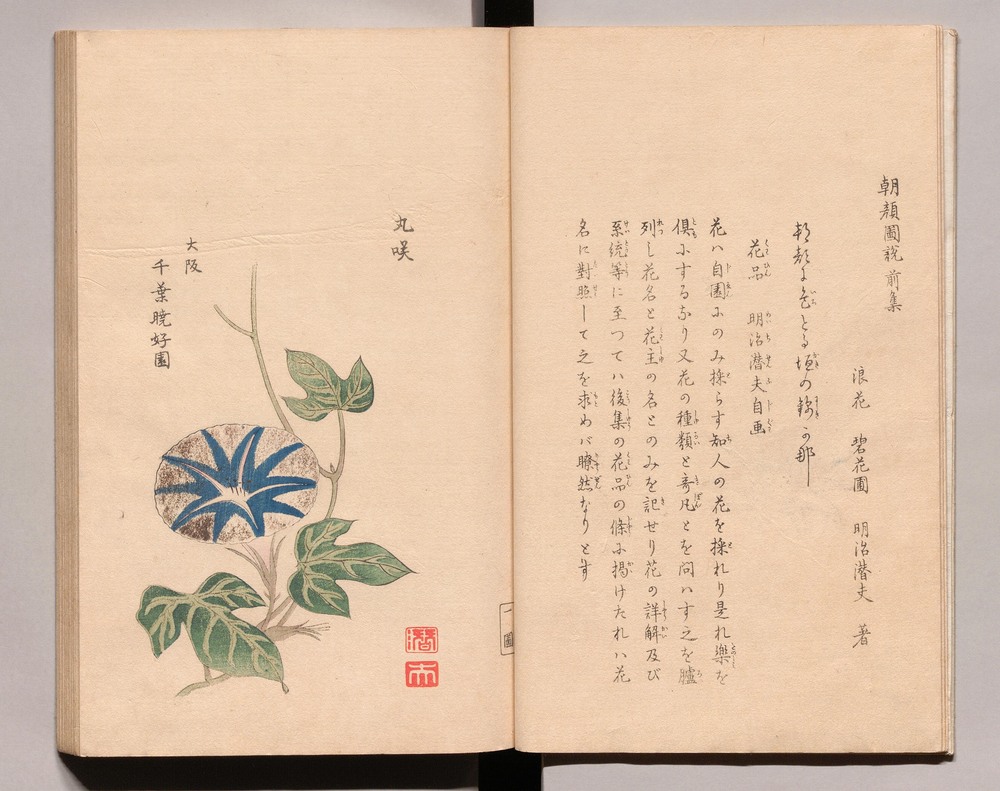 朝顔圖説 前集
浪花 碧花圃 明治潜夫 著
朝顔に色とる垣の錦かな那
花品 明治潜夫自画
花ハ自園にのみ採らす知人の花を採れり是れ楽を
倶にするなり又花の種類と奇凡とを問ハす之を臚
列し花名と花主の名とのみを記せり花の詳解及び
系統等に至つてハ後集の花品の條に掲けたれハ花
名に對照して之を求めバ瞭然なりとす
丸咲
大阪
千葉暁好園
一圖